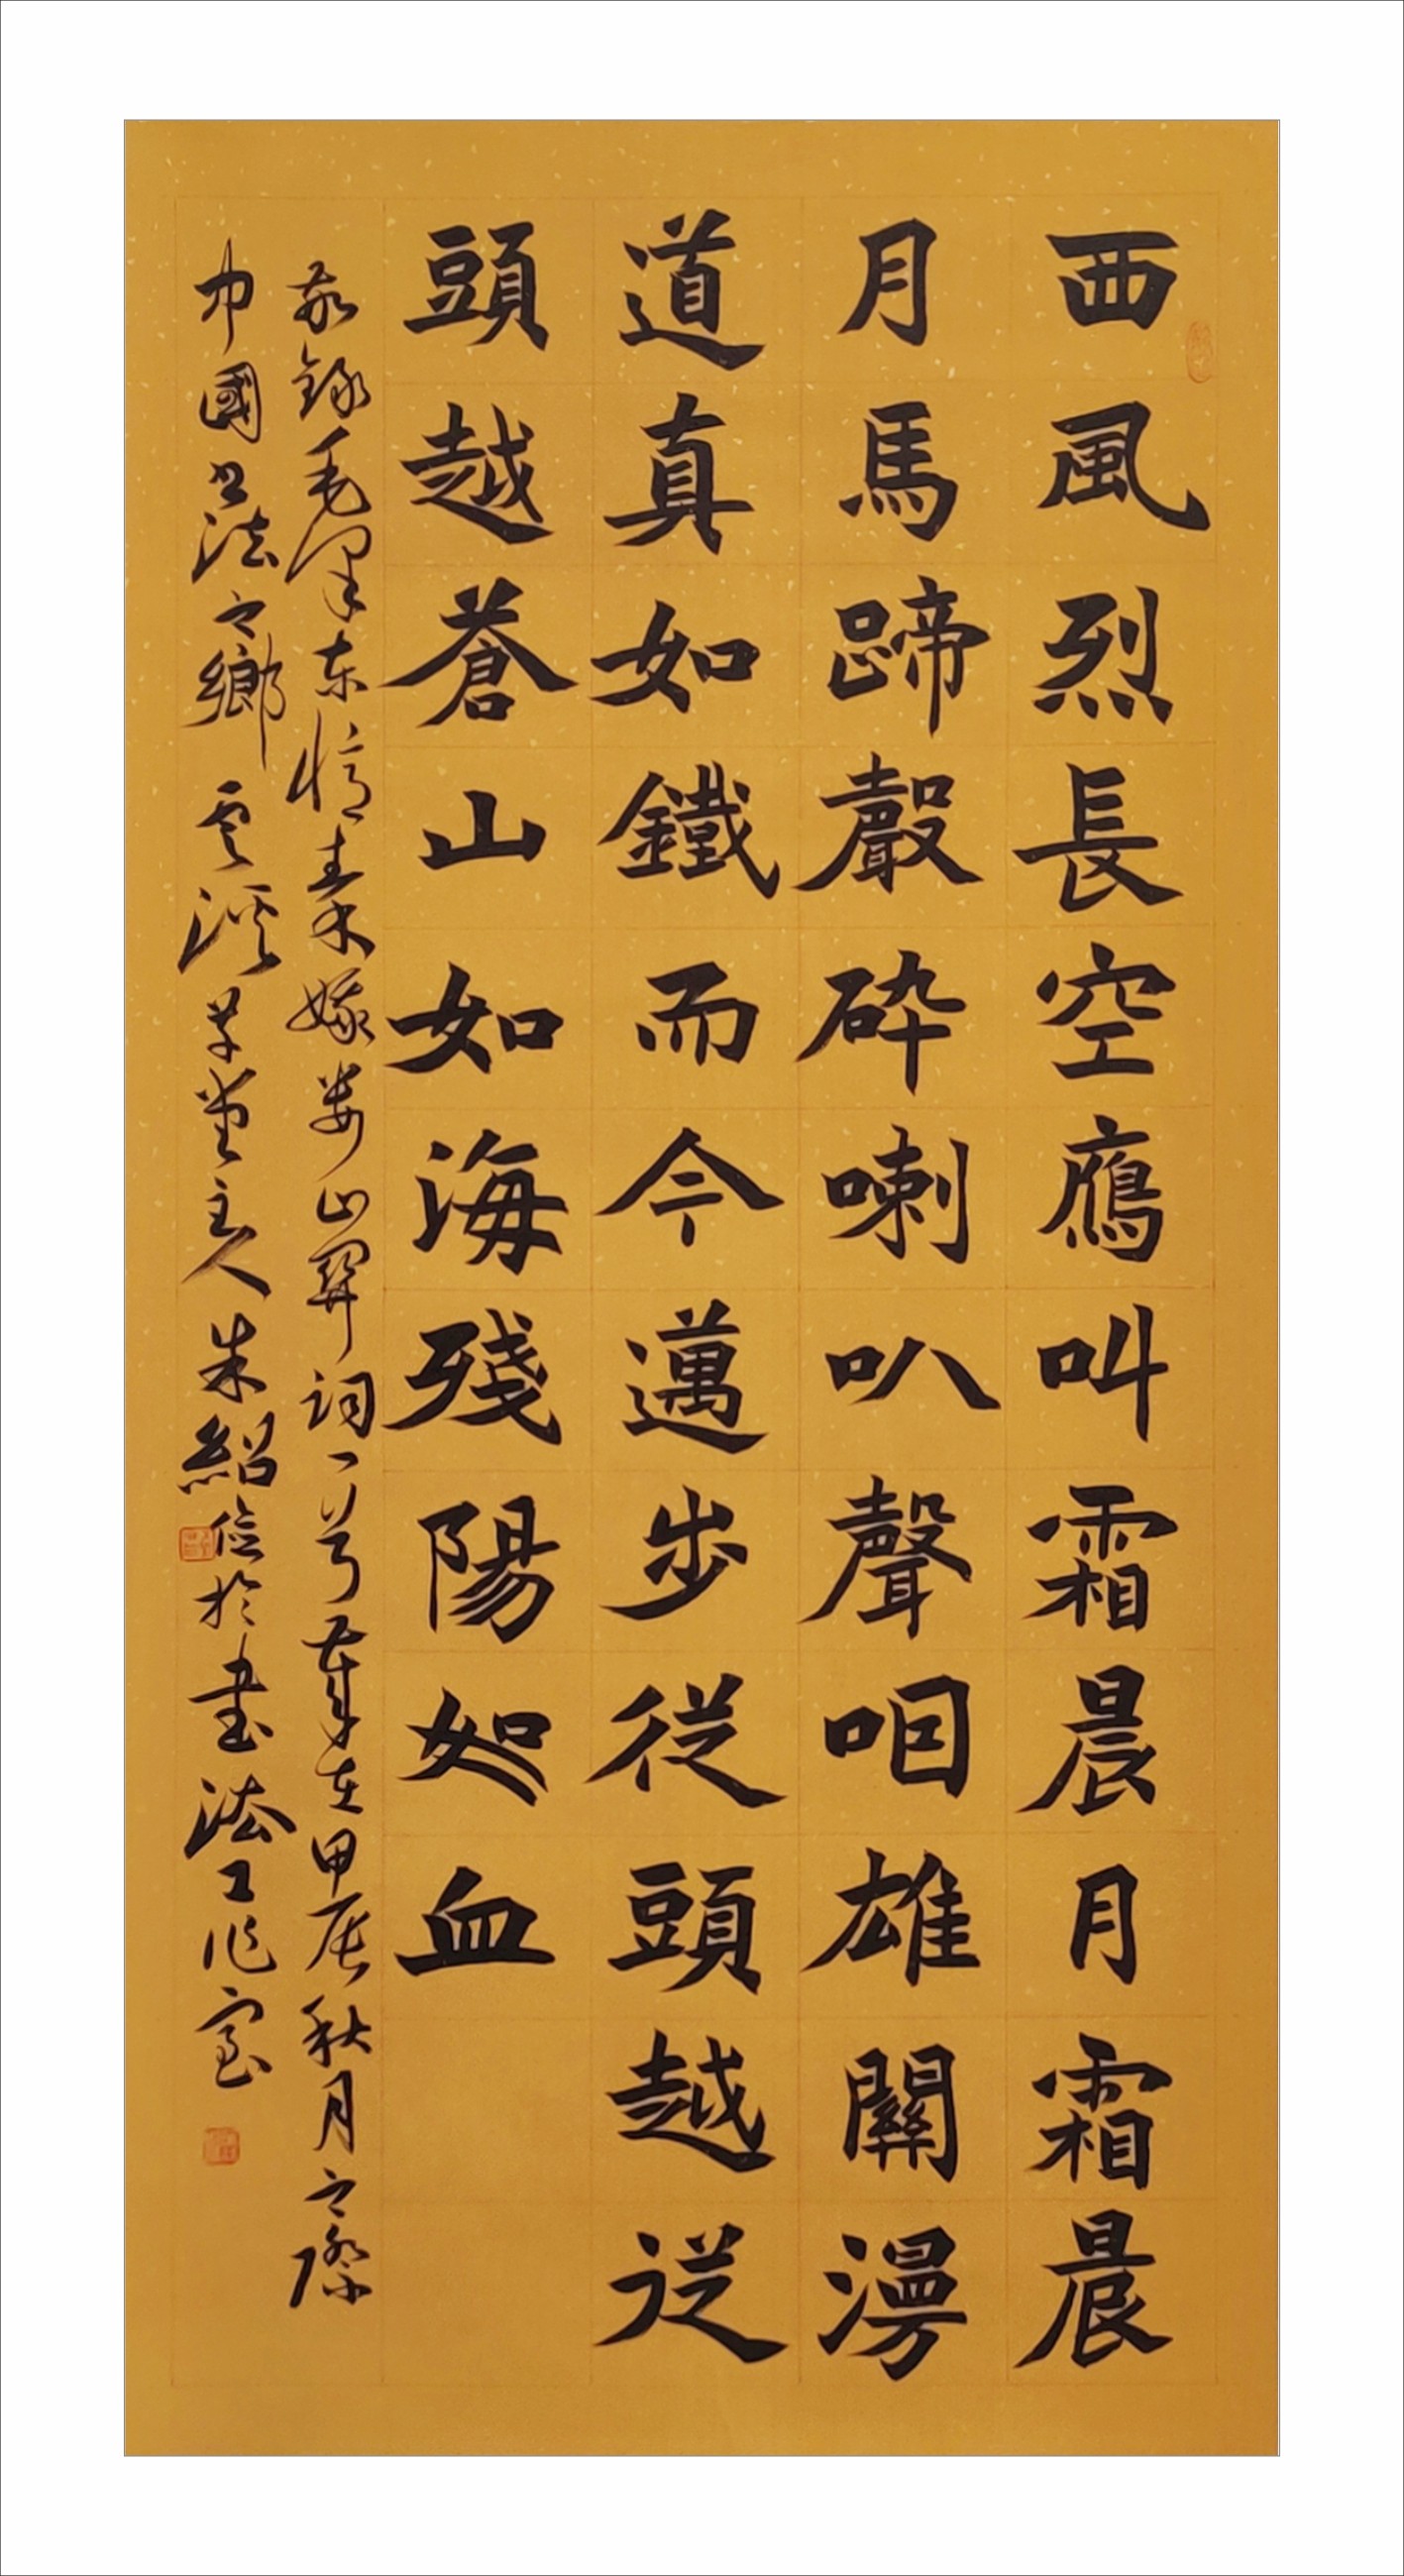 西風烈長空鷹叫霜晨月霜晨
月馬蹄聲碎喇叭聲咽雄關漫
道真如鐵而今邁步從頭越從
頭越蒼山如海殘陽如血
敬錄毛澤東憶秦娥婁山關詞一首歲在甲辰秋月之際
中國书法之鄉雲溪草堂主人朱紹儉於書法工作室